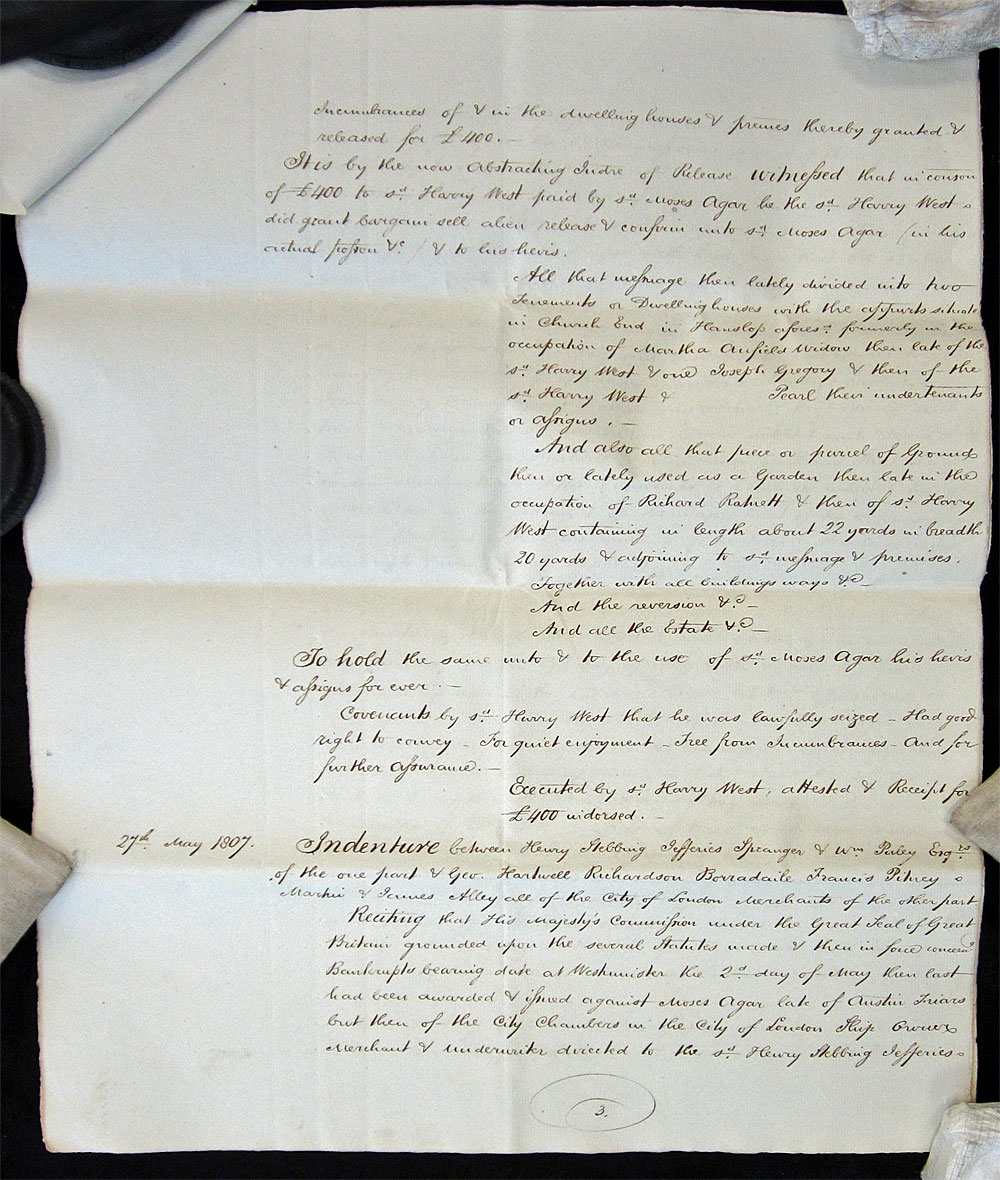 Incumbrances of & in the dwelling houses & premes thereby granted &
released for £400. —
It is by the now Abstracting Indre of Release witnessed that in conson
of £400 to sd. Harry West paid by sd. Moses Agar he the sd. Harry West
did grant bargain sell alien release & confirm unto sd. Moses Agar (in his
actual posson &c.) & to his heirs.
All that messuage then lately divided into two
Tenements or Dwelling houses with the appurts situate
in Church End in Hanslop aforesd. formerly in the
occupation of Martha Anfield Widow then late of the
sd. Harry West & one Joseph Gregory & then of the
sd. Harry West & Pearl their undertenants
or assigns. —
And also all that piece or parcel of Ground
then or lately used as a Garden then late in the
occupation of Richard Ratnett & then of sd. Harry
West containing in length about 22 yards in breadth
20 yards & adjoining to sd. messuage & premises.
Together with all buildings ways &c. —
And the reversion &c. —
And all the Estate &c. —
To hold the same unto & to the use of sd. Moses Agar his heirs
& assigns for ever. —
Covenants by sd. Harry West that he was lawfully seized – Had good
right to convey – For quiet enjoyment – Free from Incumbrances – And for
further assurance. —
Executed by sd. Harry West, attested & Receipt for
£400 indorsed. —
27th. May 1807. Indenture between Henry Stebbing Jefferies Spranger & Wm Paley Esqrs
of the one part & Geo. Hartwell Richardson Borradaile Francis Pitney
Martin & James Alley all of the City of London Merchants of the other part
Reciting that His Majesty's Commission under the Great Seal of Great
Britain grounded upon the several Statutes made & then in force concerng
Bankrupts bearing date at Westminster the 2d. day of May then last
had been awarded & issued against Moses Agar late of Austin Friars
but then of the City Chambers in the City of London Ship Owner
Merchant & Underwriter directed to the sd. Henry Stebbing Jefferies
3.